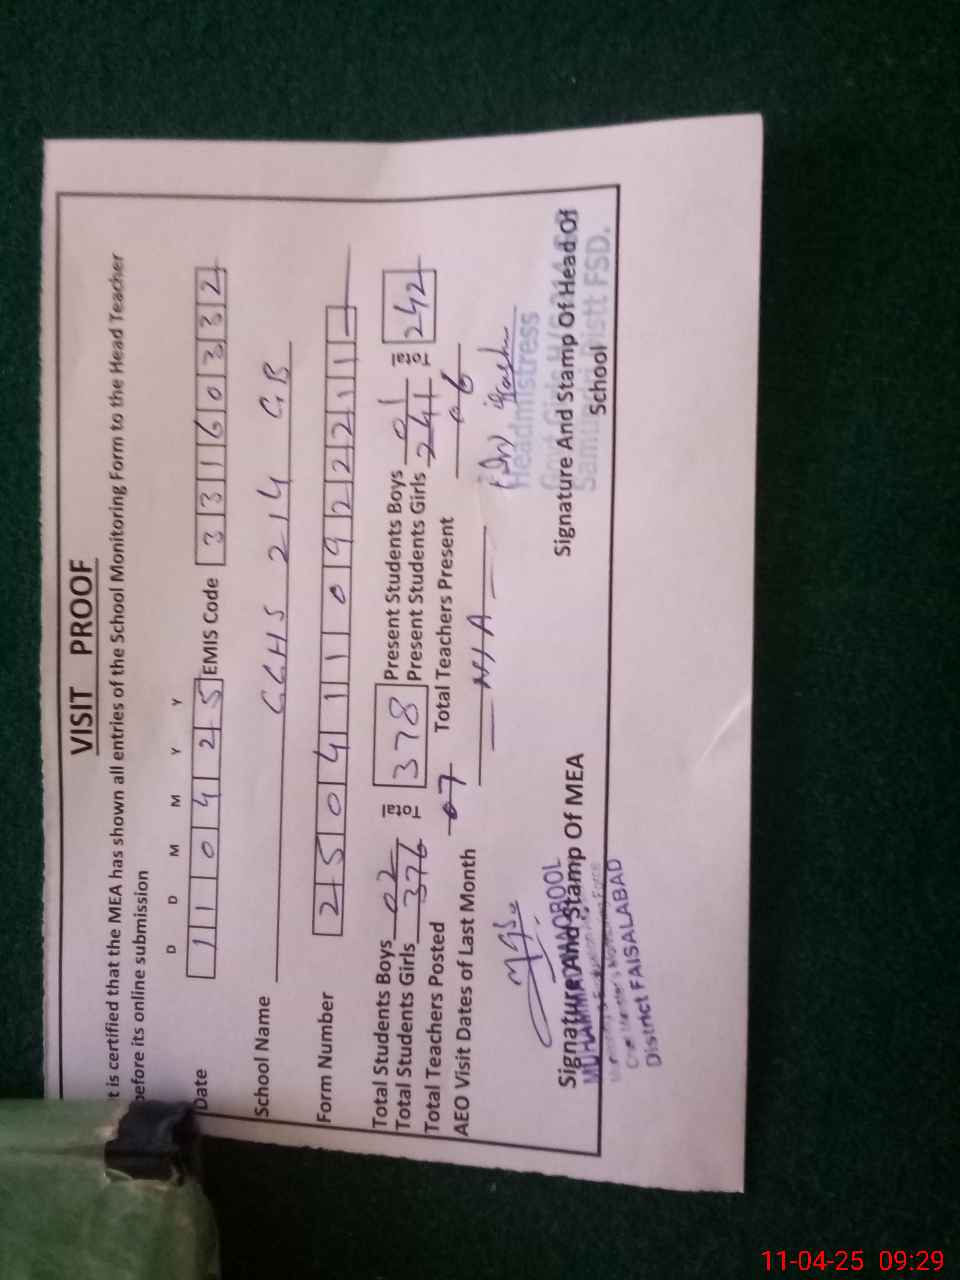 VISIT PROOF
t is certified that the MEA has shown all entries of the School Monitoring Form to the Head Teacher
before its online submission
D D M M Y Y
Date 1 1 0 4 2 5 EMIS Code 3 3 1 6 0 3 3 2
School Name GGHS 214 GB
Form Number 2 5 0 4 1 1 0 9 2 2 2 1 1
Total Students Boys 02 Present Students Boys 01
Total Students Girls 376 378 Present Students Girls 241 242
Total Teachers Posted 07 Total Teachers Present 06
AEO Visit Dates of Last Month N/A
Headmistress
Signature And Stamp Of MEA Signature And Stamp Of Head Of
School
MUHAMMAD MAQBOOL
District FAISALABAD
Distt FSD.
11-04-25 09:29